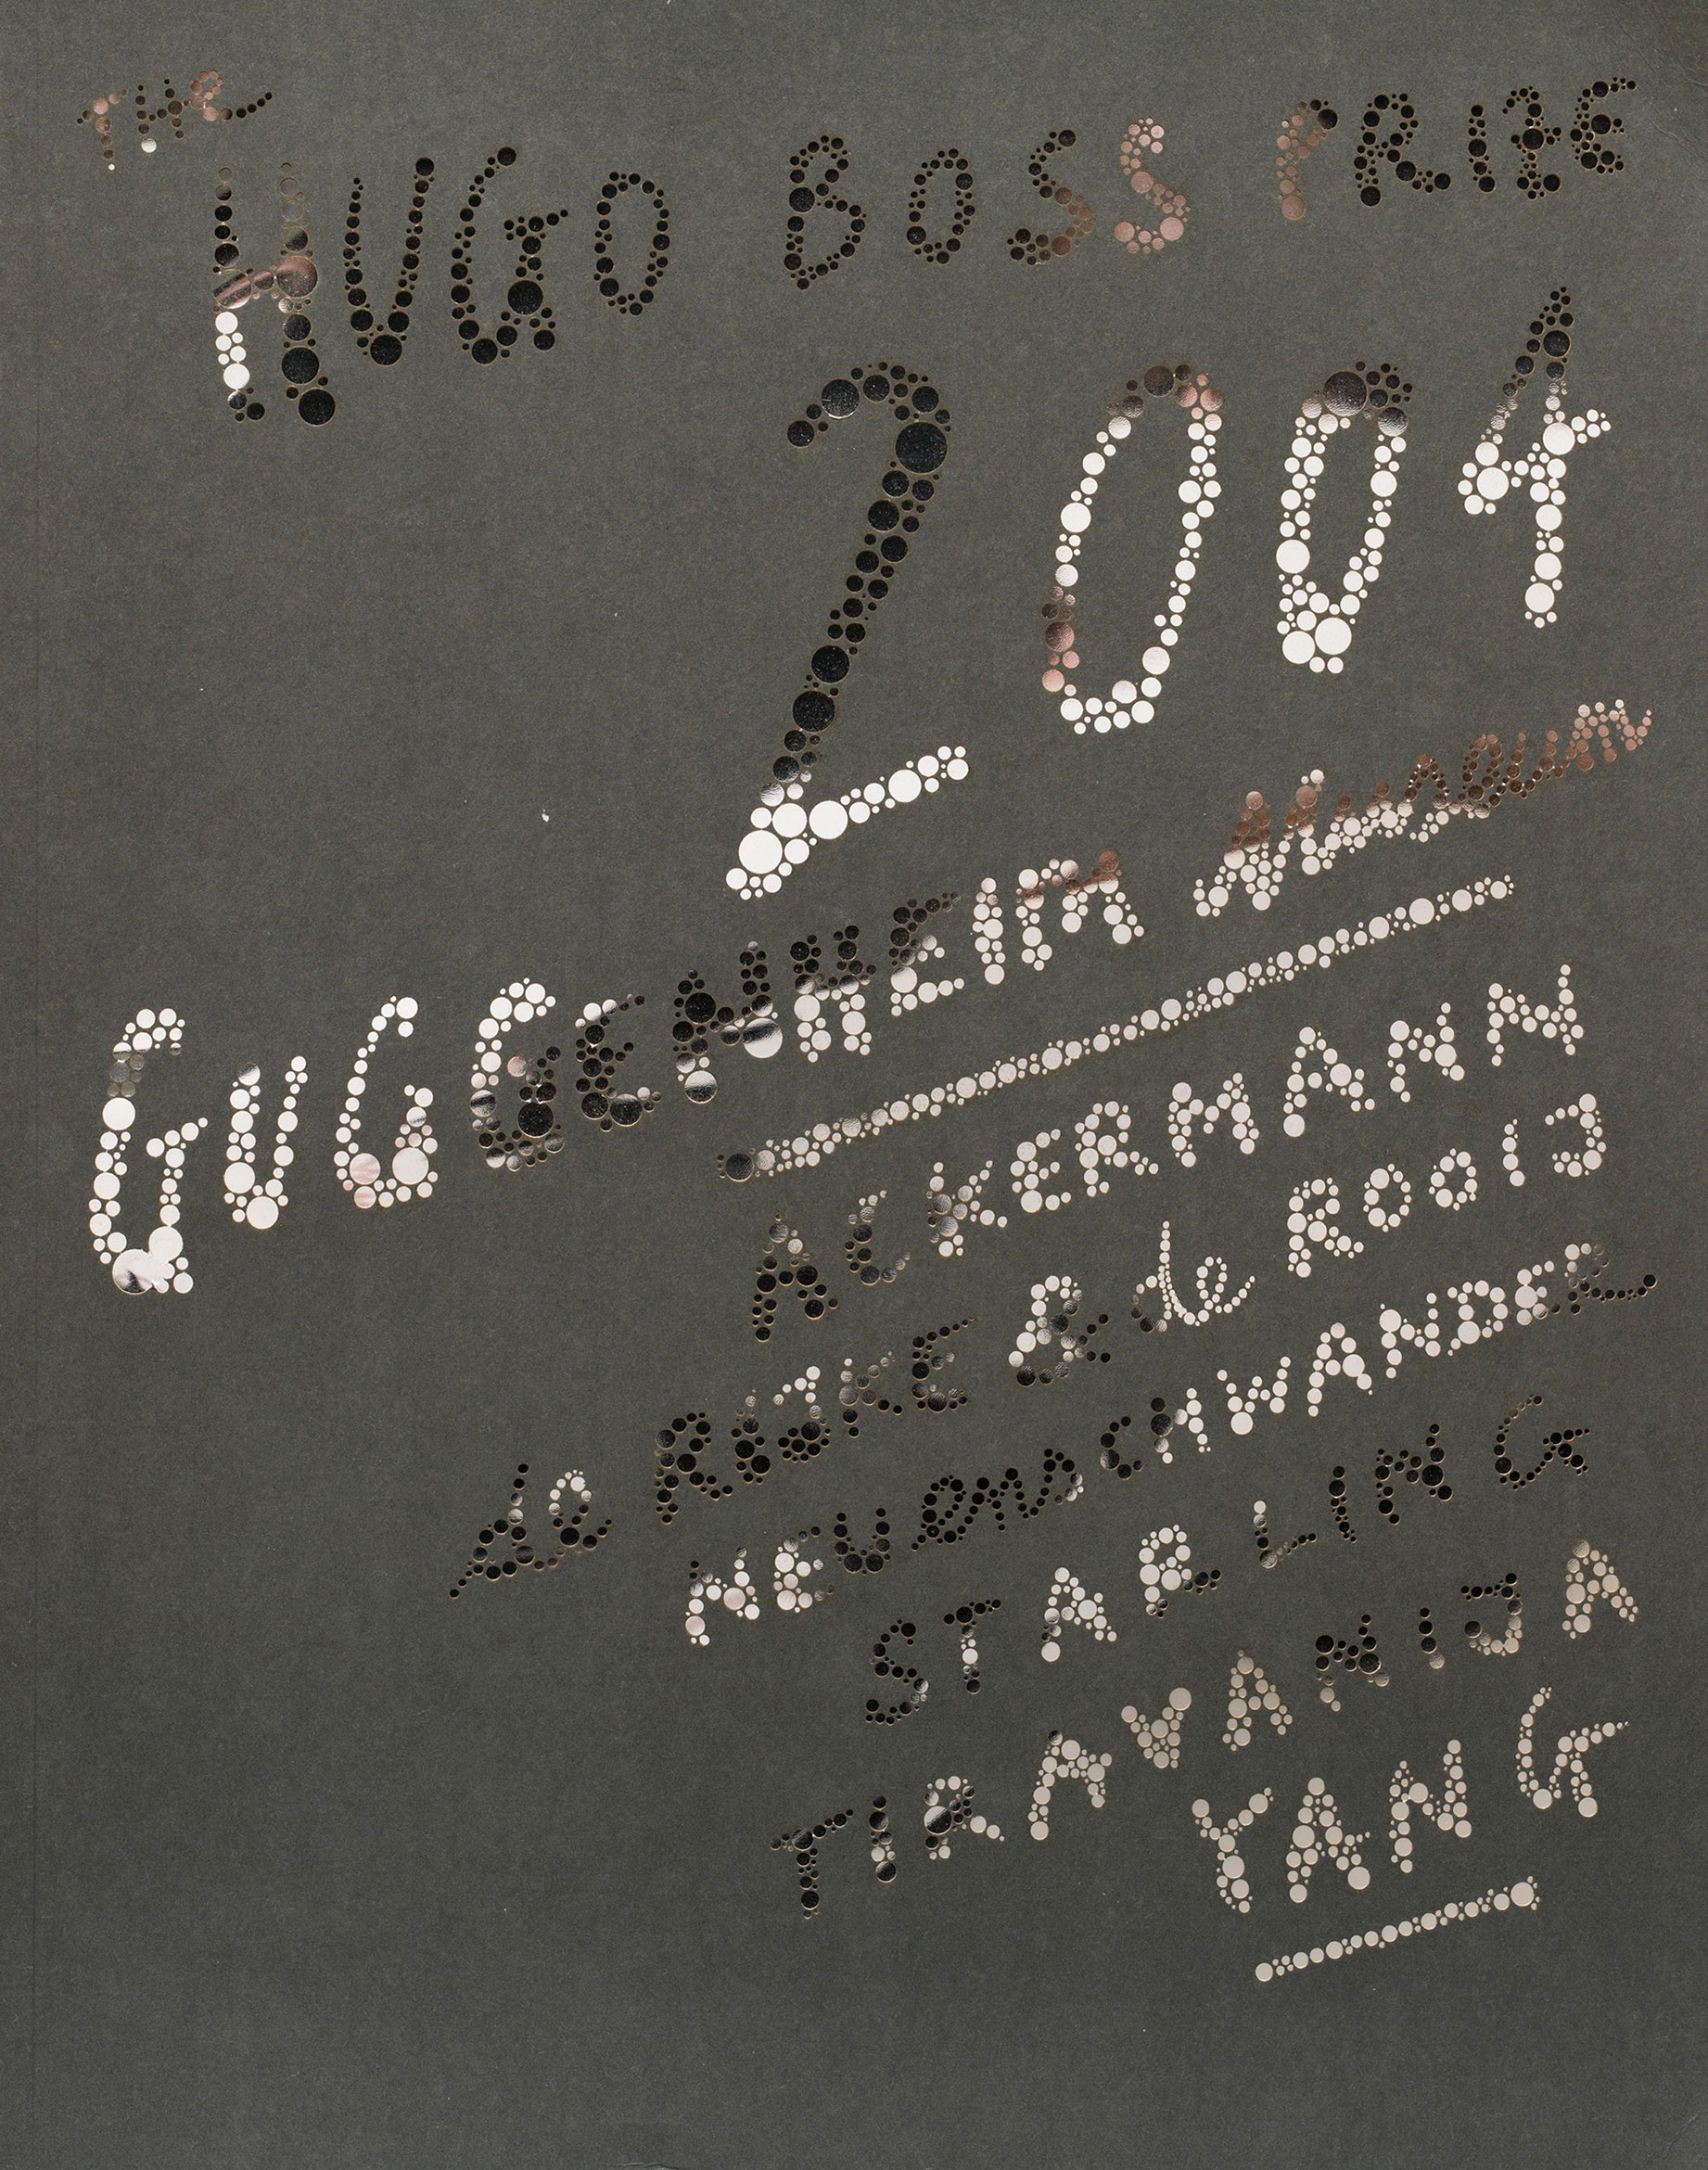 THE
HUGO BOSS PRIZE
2004
GUGGENHEIM Museum
ACKERMANN
de RIJKE & de ROOIJ
NEUENSCHWANDER
STARLING
TIRAVANIJA
YANG